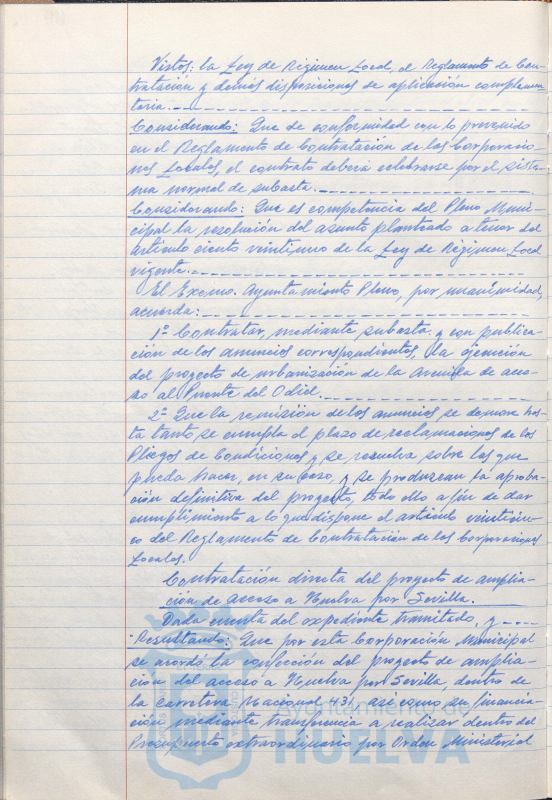 Vistos: la Ley de Régimen Local, el Reglamento de Con-
tratación y demás disposiciones de aplicación complemen-
taria.
Considerando: Que de conformidad con lo prevenido
en el Reglamento de Contratación de las Corporacio-
nes Locales, el contrato deberá celebrarse por el siste-
ma normal de subasta.
Considerando: Que es competencia del Pleno Muni-
cipal la resolución del asunto planteado a tenor del
artículo ciento veintiuno de la Ley de Régimen Local
vigente.
El Excmo. Ayuntamiento Pleno, por unanimidad,
acuerda:
1º Contratar, mediante subasta y con publica-
ción de los anuncios correspondientes, la ejecución
del proyecto de urbanización de la Avenida de acce-
so al Puente del Odiel.
2º Que la remisión de los anuncios se demore has-
ta tanto se cumpla el plazo de reclamaciones de los
Pliegos de Condiciones y se resuelva sobre las que
pueda haber, en su caso, y se produzcan la aproba-
ción definitiva del proyecto, todo ello a fin de dar
cumplimiento a lo que dispone el artículo veinticin-
co del Reglamento de Contratación de las Corporaciones
Locales.
Contratación directa del proyecto de amplia-
ción de acceso a Huelva por Sevilla.
Dada cuenta del expediente tramitado, y
Resultando: Que por esta Corporación Municipal
se acordó la confección del proyecto de amplia-
ción del acceso a Huelva por Sevilla, dentro de
la carretera Nacional 431, así como su financia-
ción mediante transferencia a realizar dentro del
Presupuesto extraordinario por Orden Ministerial
Ayuntamiento de
HUELVA